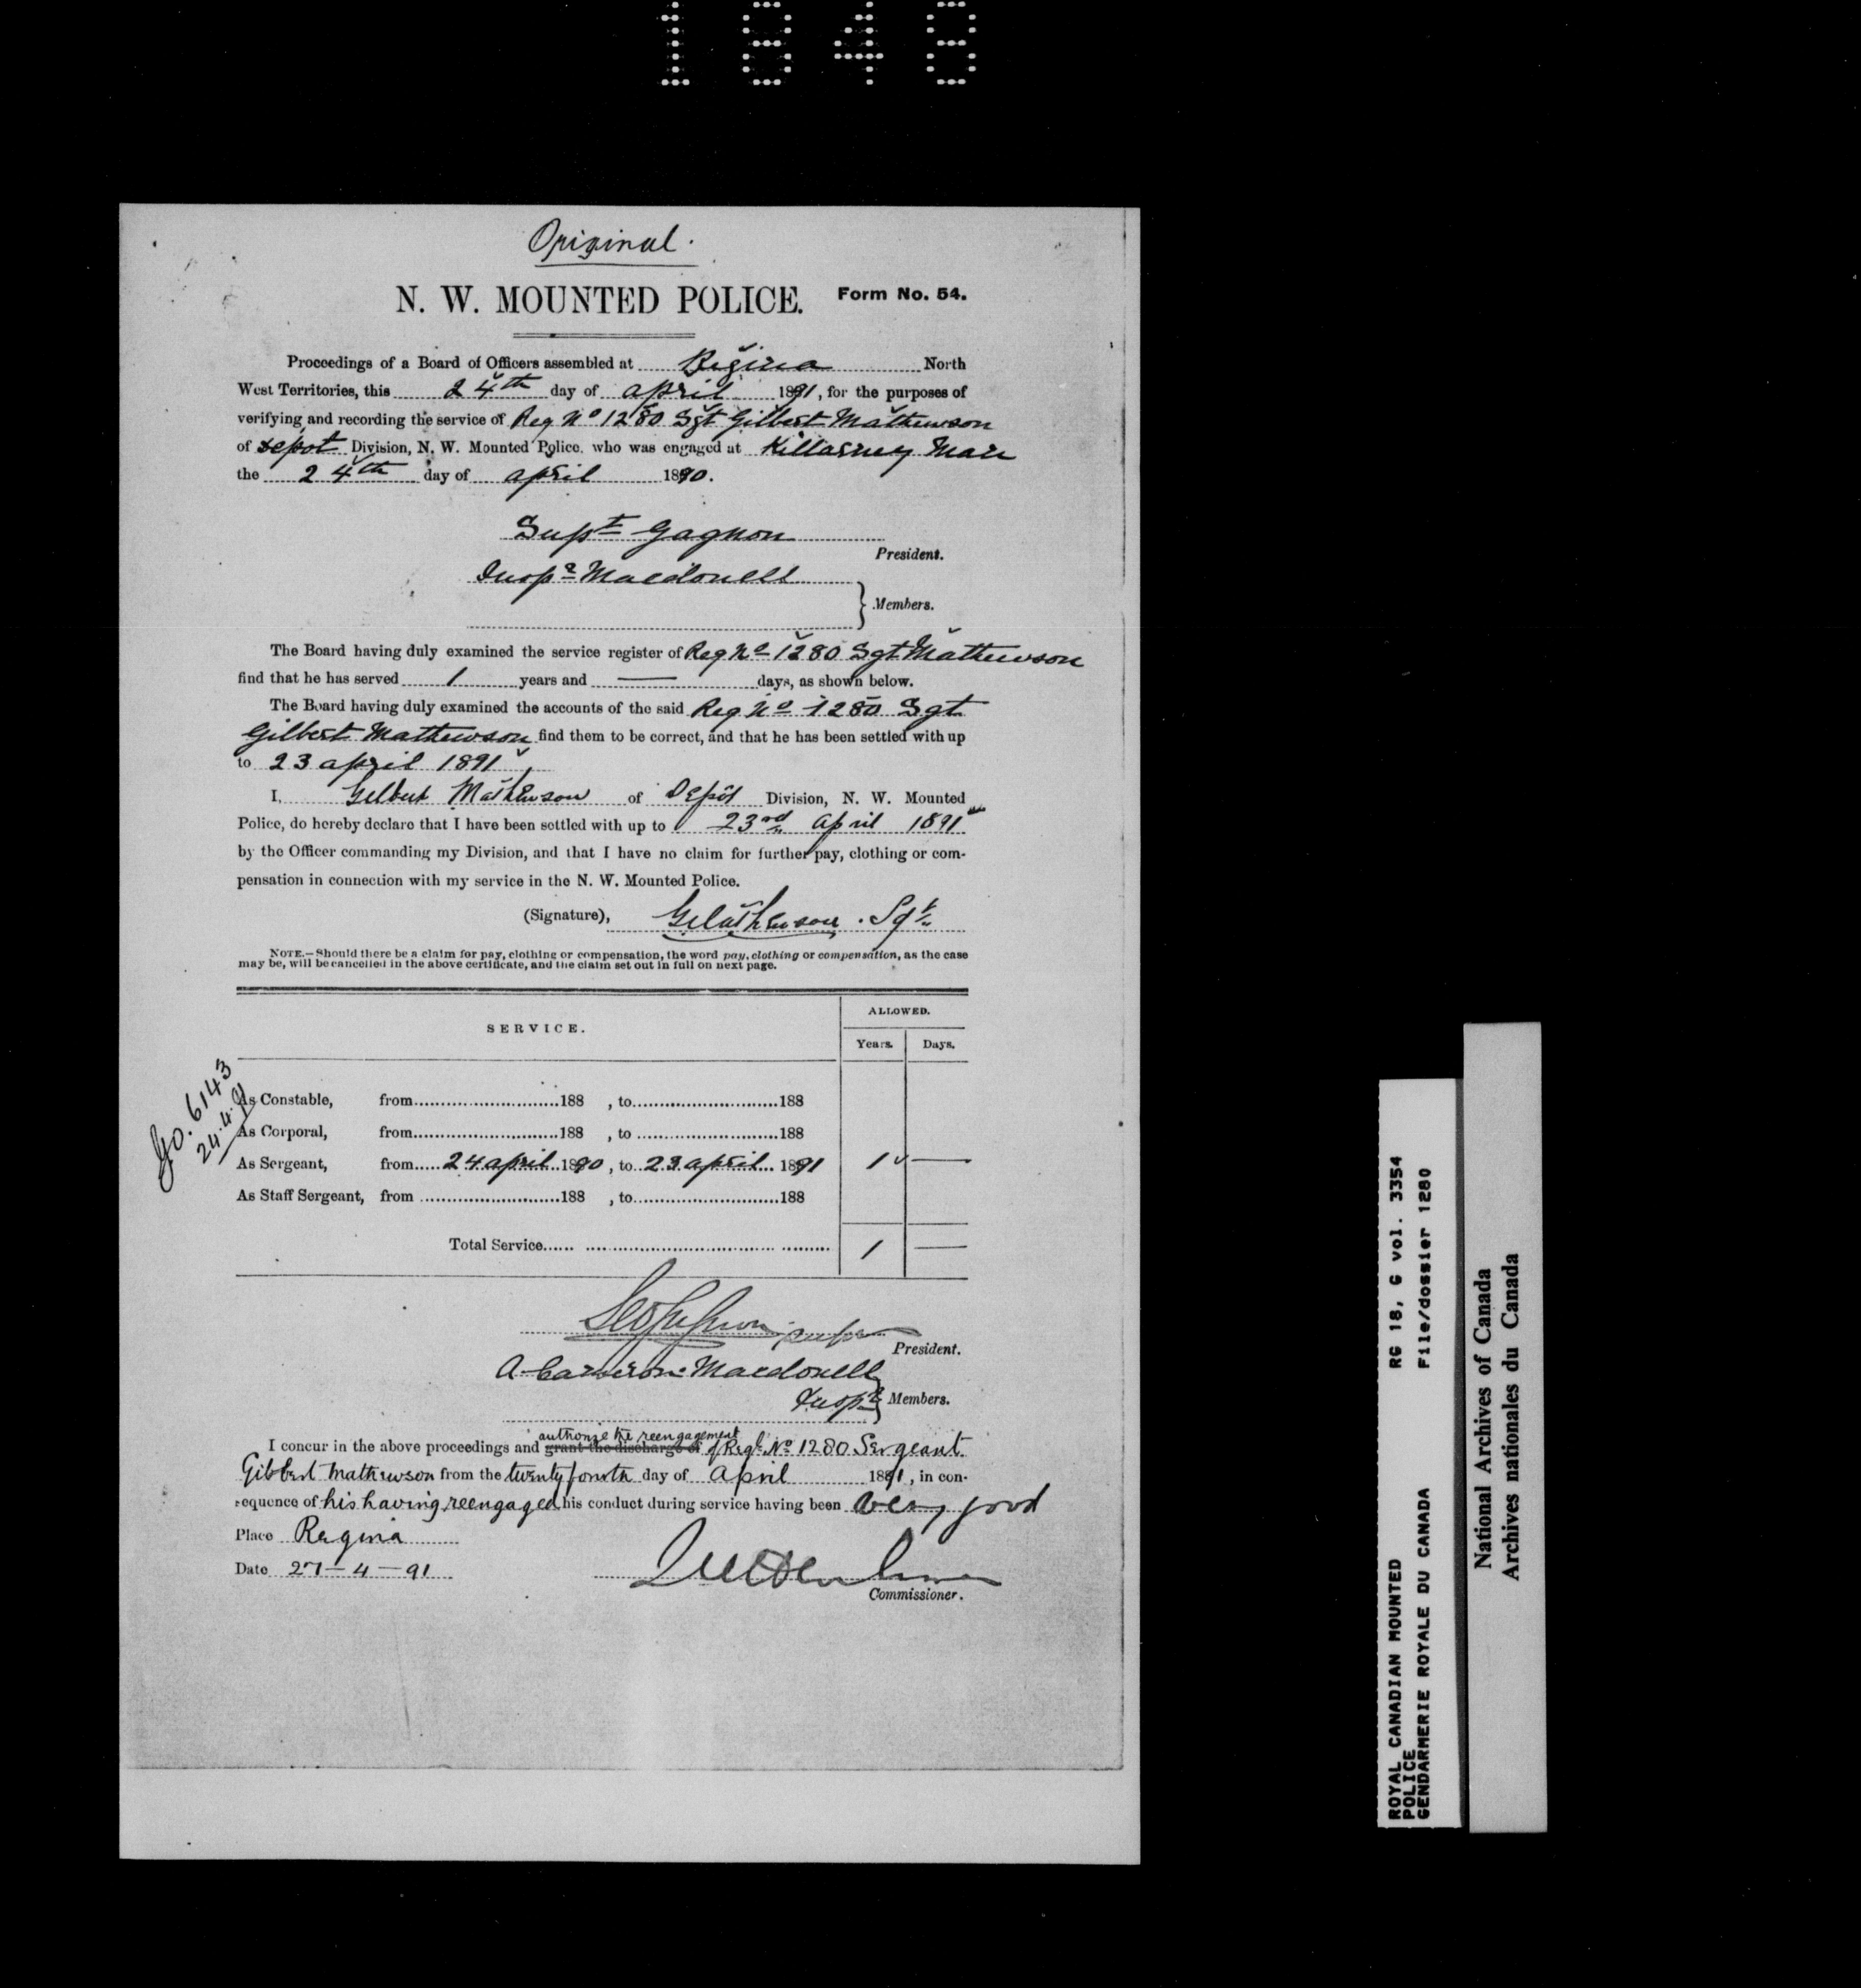 1848
Original.
N. W. MOUNTED POLICE. Form No. 54.
Proceedings of a Board of Officers assembled at Regina North
West Territories, this 24th day of april 1891, for the purposes of
verifying and recording the service of Reg No 1280 Sgt Gilbert Mathewson
of depot Division, N. W. Mounted Police, who was engaged at Killarney Man
the 24th day of april 1890.
Supt Gagnon
President.
Inspr Macdonell
Members.
The Board having duly examined the service register of Reg No 1280 Sgt Mathewson
find that he has served 1 years and — days, as shown below.
The Board having duly examined the accounts of the said Reg No 1280 Sgt
Gilbert Mathewson find them to be correct, and that he has been settled with up
to 23 april 1891,
I, Gilbert Mathewson of Depôt Division, N. W. Mounted
Police, do hereby declare that I have been settled with up to 23rd April 1891
by the Officer commanding my Division, and that I have no claim for further pay, clothing or com-
pensation in connection with my service in the N. W. Mounted Police.
(Signature), G Mathewson. Sgt
NOTE.—Should there be a claim for pay, clothing or compensation, the word pay, clothing or compensation, as the case
may be, will be cancelled in the above certificate, and the claim set out in full on next page.
SERVICE.
ALLOWED.
Years. Days.
GO. 6143
24.4.91
As Constable, from 188 , to 188
As Corporal, from 188 , to 188
As Sergeant, from 24 april 1890, to 23 april 1891 1 —
As Staff Sergeant, from 188 , to 188
Total Service 1 —
President.
A. Cameron Macdonell
Inspr Members.
authorize the reengagement
I concur in the above proceedings and grant the discharge of of Regt. No 1280 Sergeant
Gilbert Mathewson from the twenty fourth day of April 1891, in con-
sequence of his having reengaged his conduct during service having been very good
Place Regina
Date 27-4-91
Commissioner.
ROYAL CANADIAN MOUNTED POLICE RG 18, G vol. 3354
GENDARMERIE ROYALE DU CANADA File/dossier 1280
National Archives of Canada
Archives nationales du Canada